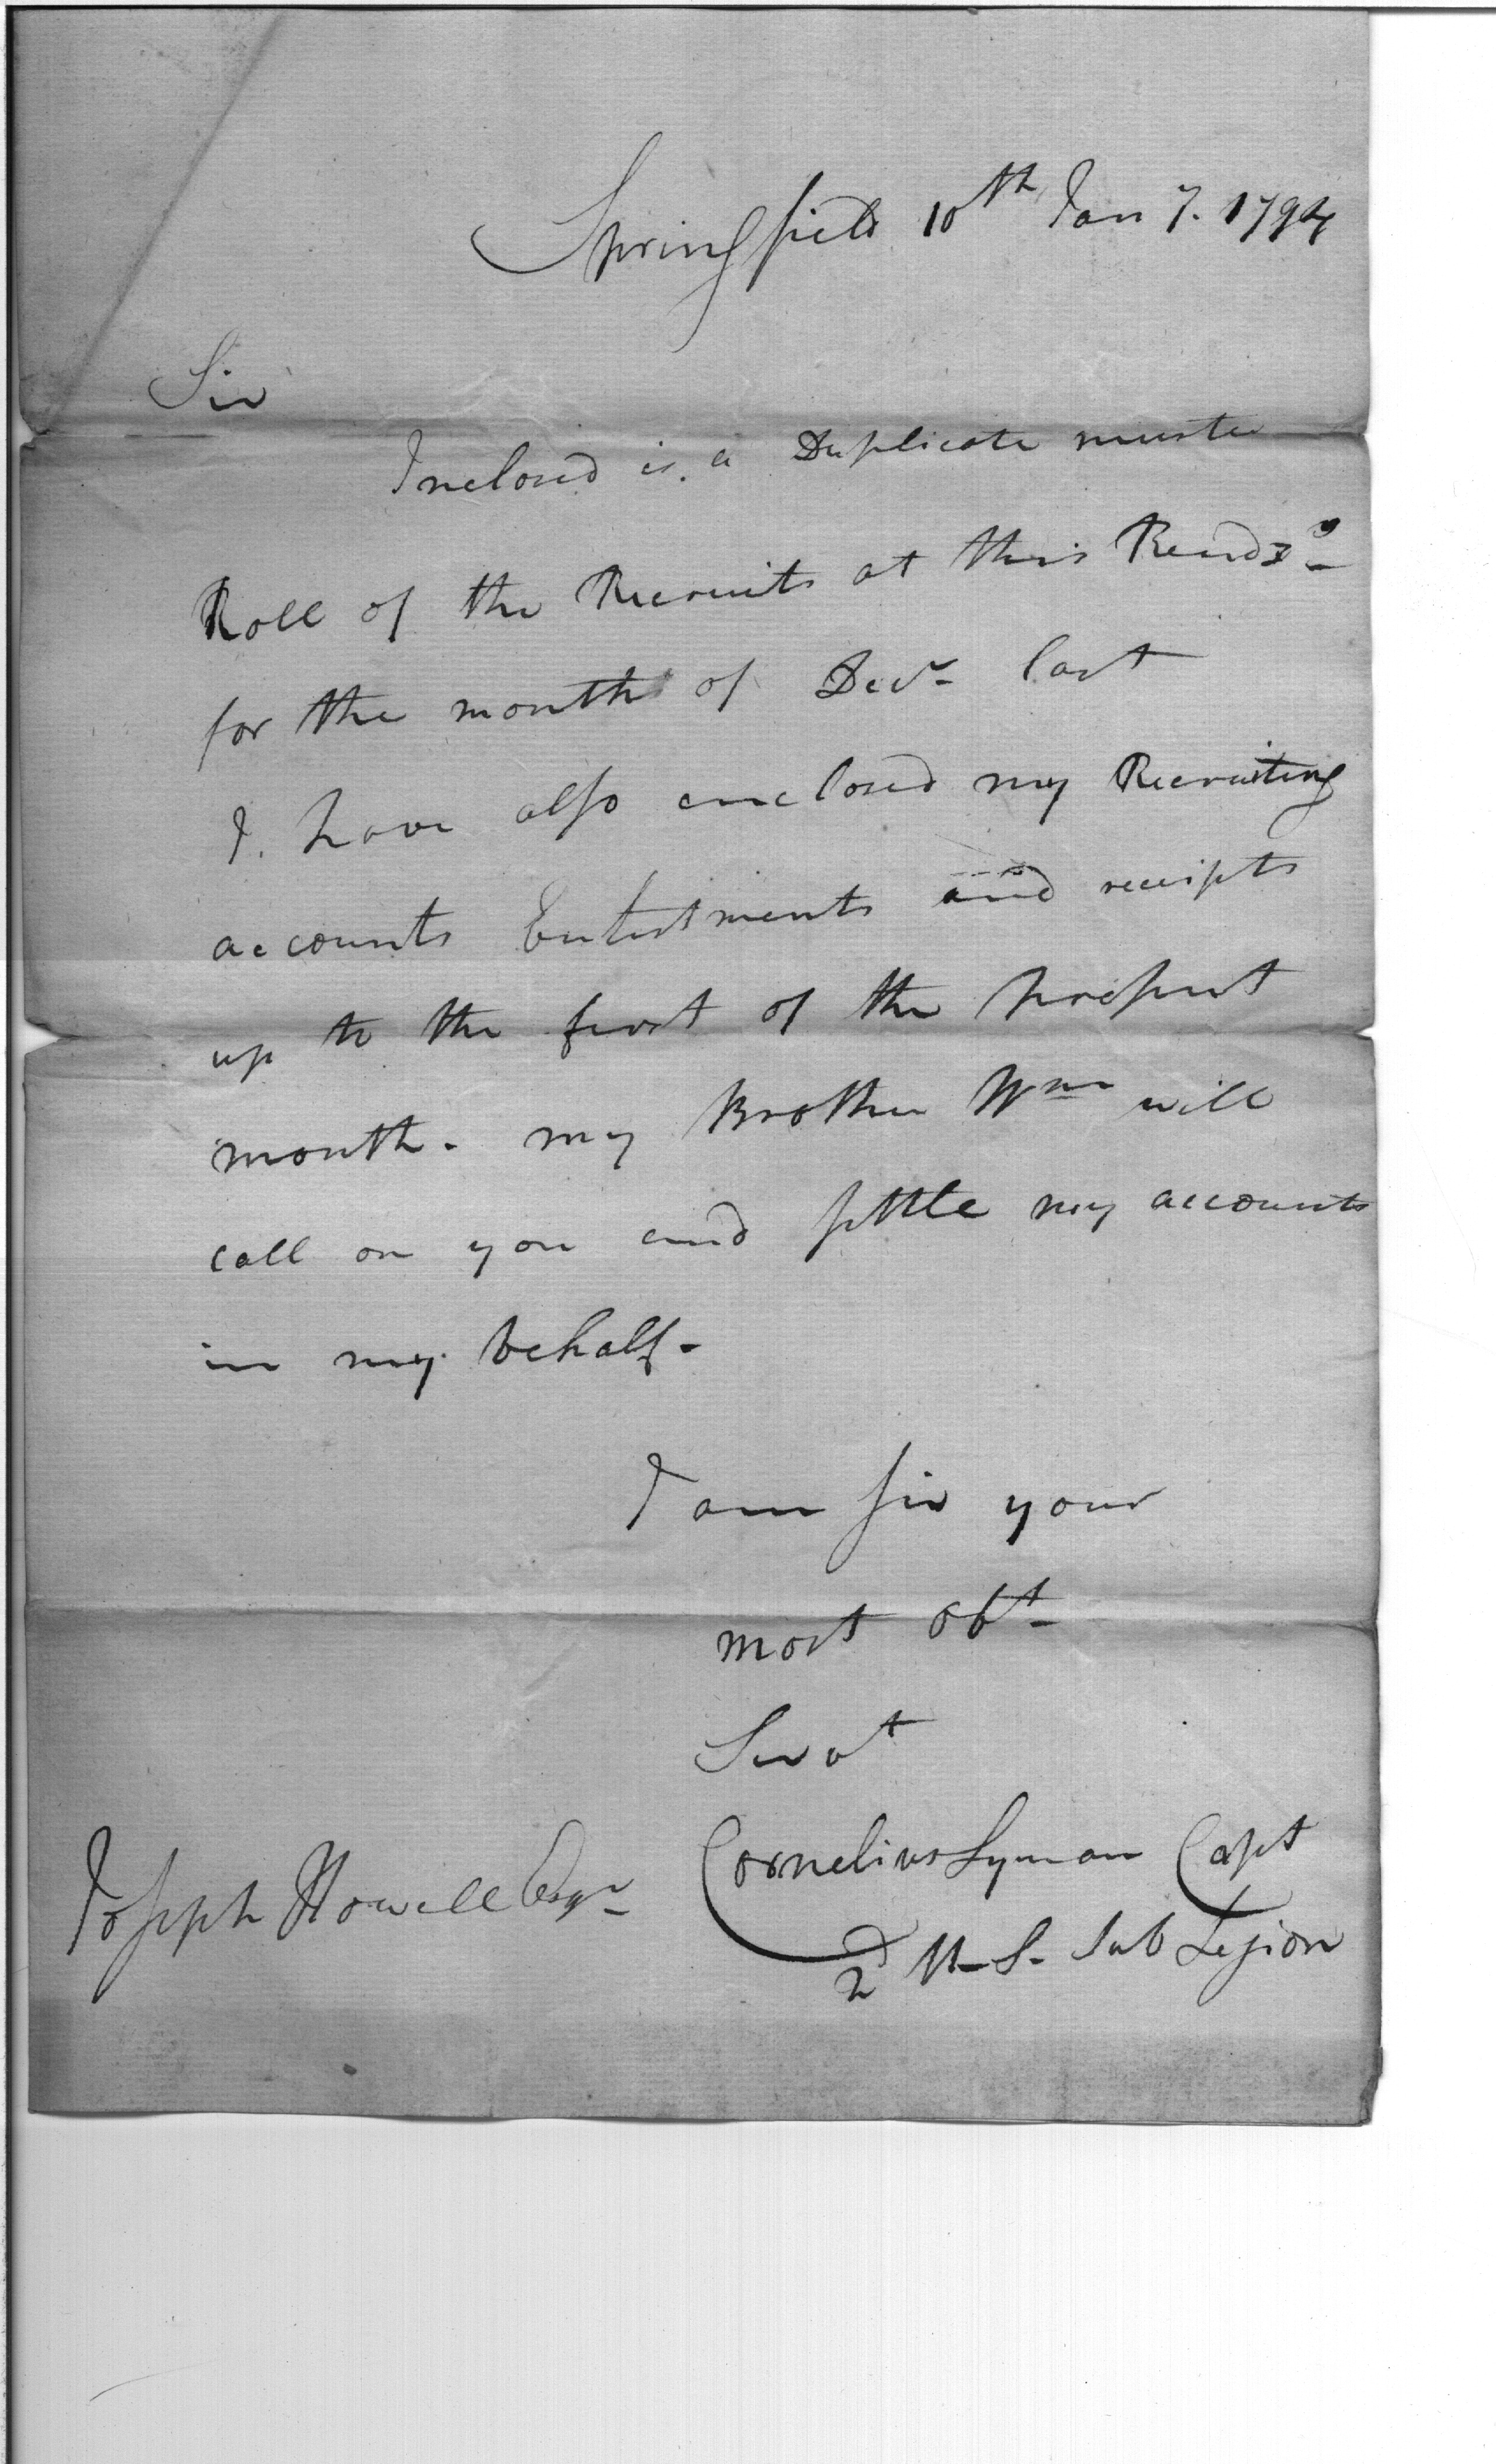 Springfield 10th Jany. 1794
Sir
Inclosed is a Duplicate muster
Roll of the Recruits at this Rendzs
for the month of Decr last
I have also enclosed my Recruiting
accounts Enlistments and receipts
up to the first of the present
month. my Brother Wm will
call on you and settle my accounts
in my behalf.
I am sir your
most obt
Servt
Cornelius Lyman Capt
2d U. S. Sub Legion
Joseph Howell Esqr